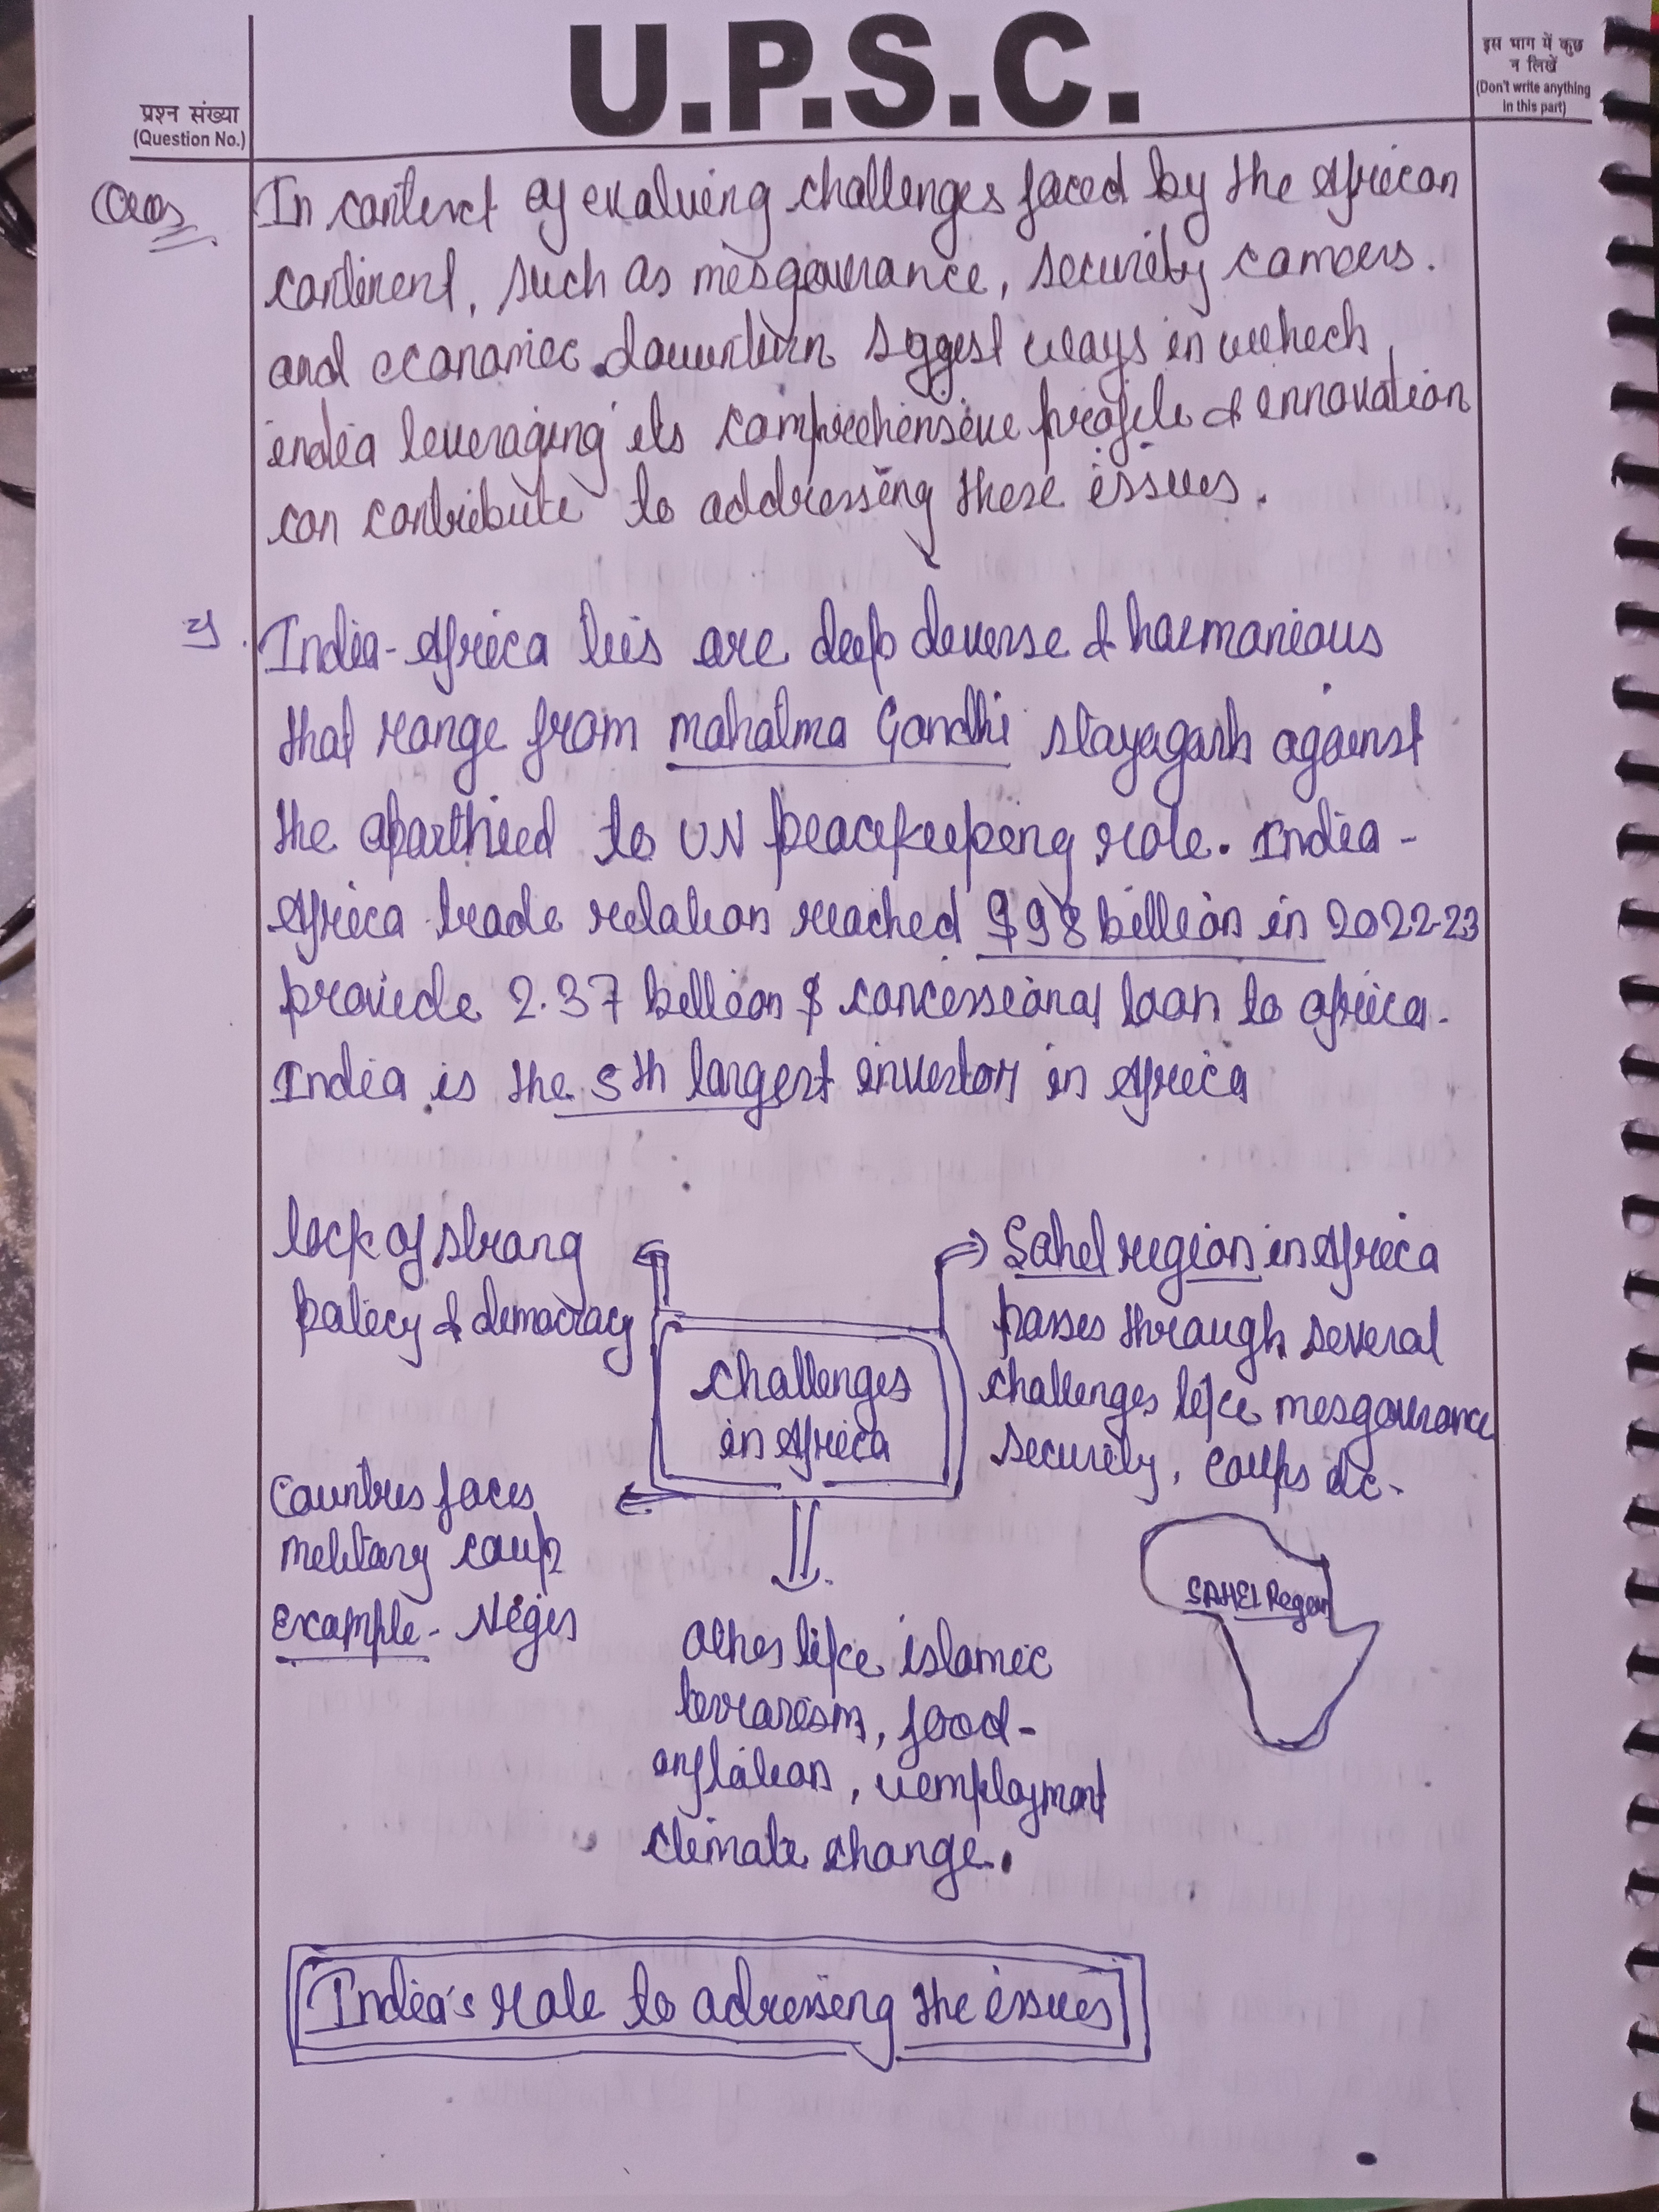 U.P.S.C.
प्रश्न संख्या
(Question No.)
इस भाग में कुछ
न लिखें
(Don't write anything
in this part)
Ques
In context of evolving challenges faced by the African
continent, such as misgoverance, security
and economic downturn sggest ways in which
india leveraging its comprehensive profile & innovation
can contribute to addressing these issues.
India-Africa ties are deep diverse & harmonious
that range from mahatma Gandhi stayagarh against
the apartheid to UN peacekeeping role. India-
Africa trade relation reached $98 billion in 2022-23
provide 2.37 billion $ concessional loan to africa.
India is the 5th largest investor in Africa
lack of strong
policy & democracy
Sahel region in Africa
passes through several
challenges like misgoverance
security, coups etc.
challenges
in Africa
Countries faces
military coup
Example - Niger
SAHEL Region
others like islamic
terrorism, food-
inflation, uemployment
climate change.
India's role to adressing the issues